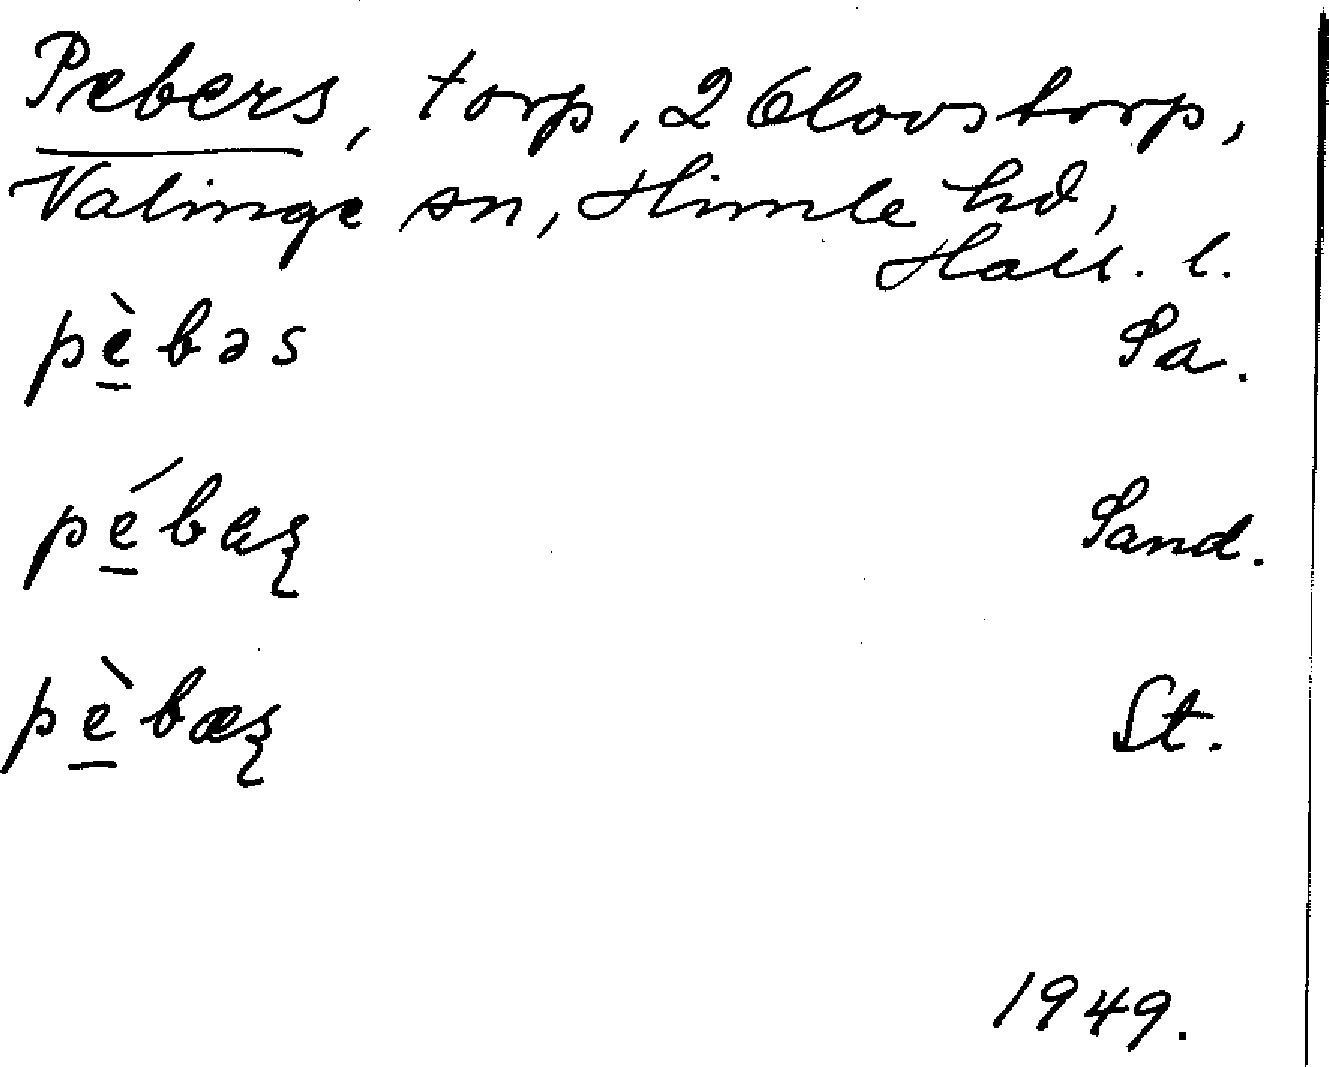 Pebers, torp, 2 Olovstorp,
Valinge sn, Himle hd,
Hall. l.
pè̲bəs Sa.
pé̲bæʂ Sand.
pè̲bæʂ St.
1949.